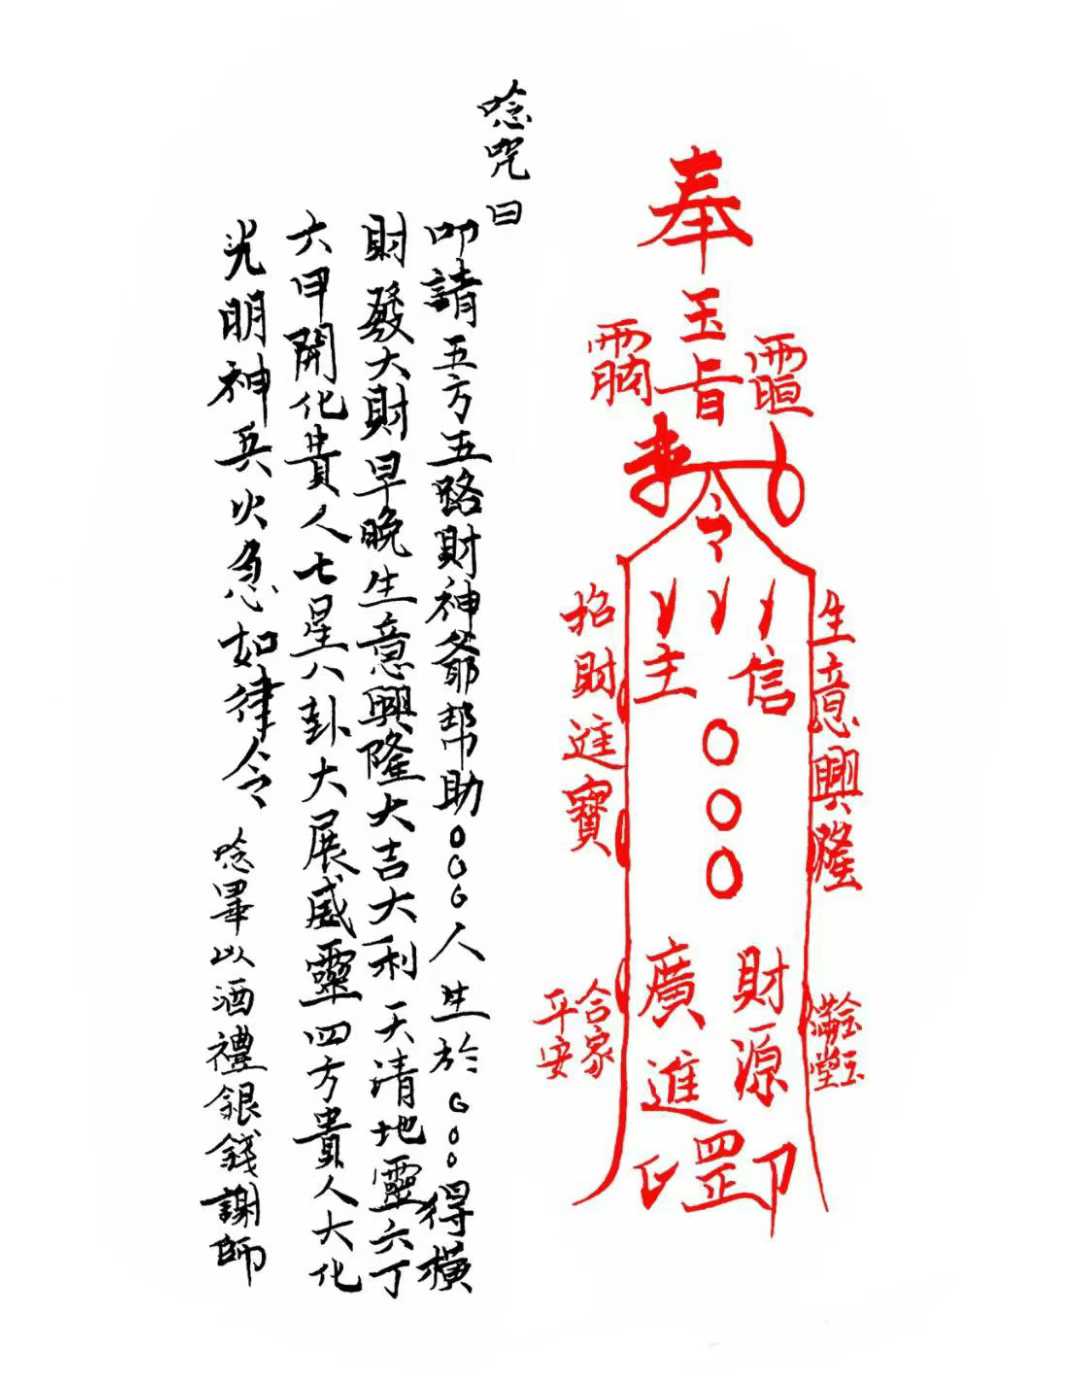 奉
玉旨
令
信
主
○○○
財源
廣進
罡印
生意興隆
招財進寶
金玉滿堂
合家平安
唸咒曰
叩請五方五路財神爺幫助○○○人生於○○○得橫
財發大財早晚生意興隆大吉大利天清地靈六丁
六甲開化貴人七星八卦大展威靈四方貴人大化
光明神兵火急如律令
唸畢以酒禮銀錢謝師